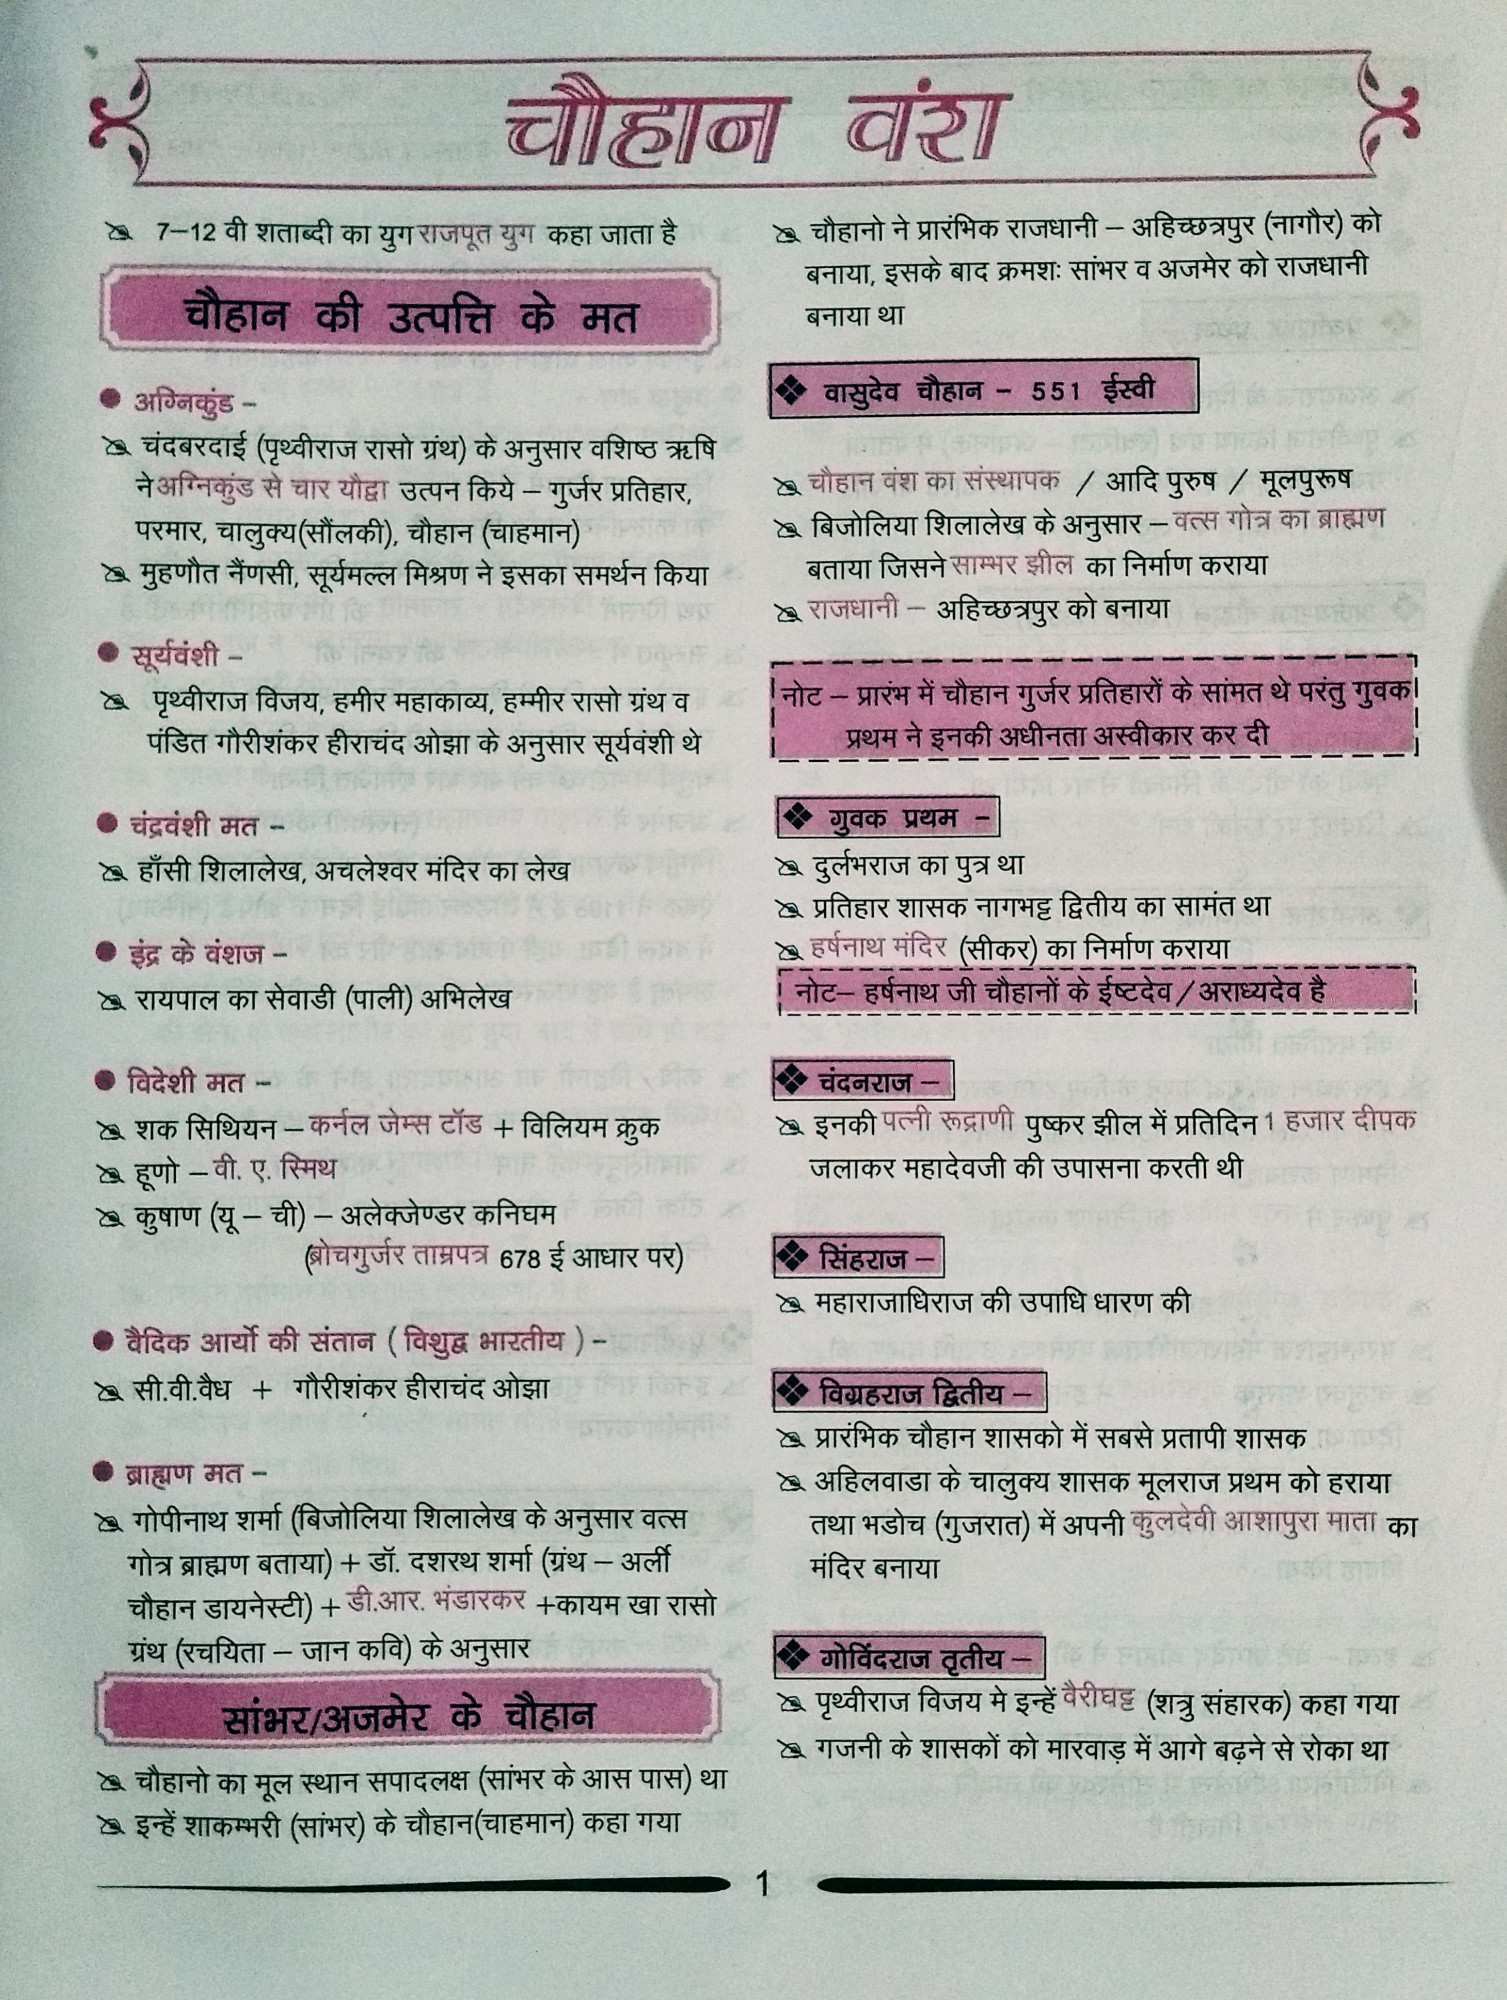 चौहान वंश
7–12 वी शताब्दी का युग राजपूत युग कहा जाता है
चौहान की उत्पत्ति के मत
अग्निकुंड –
चंदबरदाई (पृथ्वीराज रासो ग्रंथ) के अनुसार वशिष्ठ ऋषि
ने अग्निकुंड से चार यौद्वा उत्पन किये – गुर्जर प्रतिहार,
परमार, चालुक्य(सौंलकी), चौहान (चाहमान)
मुहणौत नैंणसी, सूर्यमल्ल मिश्रण ने इसका समर्थन किया
सूर्यवंशी –
पृथ्वीराज विजय, हमीर महाकाव्य, हम्मीर रासो ग्रंथ व
पंडित गौरीशंकर हीराचंद ओझा के अनुसार सूर्यवंशी थे
चंद्रवंशी मत –
हाँसी शिलालेख, अचलेश्वर मंदिर का लेख
इंद्र के वंशज –
रायपाल का सेवाडी (पाली) अभिलेख
विदेशी मत –
शक सिथियन – कर्नल जेम्स टॉड + विलियम क्रुक
हूणो – वी. ए. स्मिथ
कुषाण (यू – ची) – अलेक्जेण्डर कनिघम
(ब्रोचगुर्जर ताम्रपत्र 678 ई आधार पर)
वैदिक आर्यो की संतान ( विशुद्व भारतीय ) –
सी.वी.वैध + गौरीशंकर हीराचंद ओझा
ब्राह्मण मत –
गोपीनाथ शर्मा (बिजोलिया शिलालेख के अनुसार वत्स
गोत्र ब्राह्मण बताया) + डॉ. दशरथ शर्मा (ग्रंथ – अर्ली
चौहान डायनेस्टी) + डी.आर. भंडारकर +कायम खा रासो
ग्रंथ (रचयिता – जान कवि) के अनुसार
सांभर/अजमेर के चौहान
चौहानो का मूल स्थान सपादलक्ष (सांभर के आस पास) था
इन्हें शाकम्भरी (सांभर) के चौहान(चाहमान) कहा गया
चौहानो ने प्रारंभिक राजधानी – अहिच्छत्रपुर (नागौर) को
बनाया, इसके बाद क्रमशः सांभर व अजमेर को राजधानी
बनाया था
वासुदेव चौहान – 551 ईस्वी
चौहान वंश का संस्थापक / आदि पुरुष / मूलपुरूष
बिजोलिया शिलालेख के अनुसार – वत्स गोत्र का ब्राह्मण
बताया जिसने साम्भर झील का निर्माण कराया
राजधानी – अहिच्छत्रपुर को बनाया
नोट – प्रारंभ में चौहान गुर्जर प्रतिहारों के सांमत थे परंतु गुवक
प्रथम ने इनकी अधीनता अस्वीकार कर दी
गुवक प्रथम –
दुर्लभराज का पुत्र था
प्रतिहार शासक नागभट्ट द्वितीय का सामंत था
हर्षनाथ मंदिर (सीकर) का निर्माण कराया
नोट– हर्षनाथ जी चौहानों के ईष्टदेव/अराध्यदेव है
चंदनराज –
इनकी पत्नी रूद्राणी पुष्कर झील में प्रतिदिन 1 हजार दीपक
जलाकर महादेवजी की उपासना करती थी
सिंहराज –
महाराजाधिराज की उपाधि धारण की
विग्रहराज द्वितीय –
प्रारंभिक चौहान शासको में सबसे प्रतापी शासक
अहिलवाडा के चालुक्य शासक मूलराज प्रथम को हराया
तथा भडोच (गुजरात) में अपनी कुलदेवी आशापुरा माता का
मंदिर बनाया
गोविंदराज तृतीय –
पृथ्वीराज विजय मे इन्हें वैरीघट्ट (शत्रु संहारक) कहा गया
गजनी के शासकों को मारवाड़ में आगे बढ़ने से रोका था
1